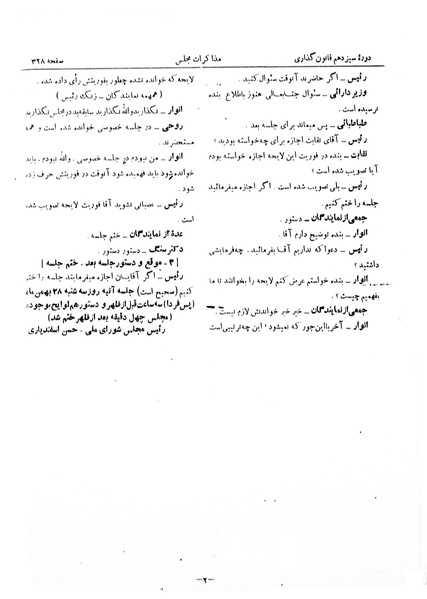 دورهٔ سیزدهم قانون گذاری
مذاکرات مجلس
صفحه ۳۲۸
رئیس ــ اگر حاضرند آنوقت سئوال کنید.
وزیر دارائی ــ سئوال جنابعالی هنوز باطلاع بنده
نرسیده است.
طباطبائی ــ پس میماند برای جلسه بعد.
رئیس ــ آقای نقابت اجازه برای چه خواسته بودید؟
نقابت ــ بنده در فوریت این لایحه اجازه خواسته بودم
آیا تصویب شده است؟
رئیس ــ بلی تصویب شده است. اگر اجازه میفرمائید
جلسه را ختم کنیم.
جمعی از نمایندگان ــ دستور.
انوار ــ بنده توضیح دارم آقا.
رئیس ــ دعوا که نداریم آقا بفرمائید. چه فرمایشی
داشتید؟
انوار ــ بنده خواستم عرض کنم لایحه را بخوانند تا ما
بفهمیم چیست؟
جمعی از نمایندگان ــ خیر خیر خواندنش لازم نیست.
انوار ــ آخر با این جور که نمیشود؛ این چه ترتیبی است
لایحه که خوانده نشده چطور بفوریتش رأی داده شده.
(همهمه نمایندگان ــ زنگ رئیس)
انوار ــ نگذارید والله نگذارید سابقه بد در مجلس نگذارید
روحی ــ در جلسه خصوصی خوانده شده است و همه
مستحضرند.
انوار ــ من نبودم در جلسه خصوصی. والله نبودم. باید
خوانده شود باید فهمیده شود آنوقت در فوریتش حرف زده
شود.
رئیس ــ عصبانی نشوید آقا فوریت لایحه تصویب شده
است.
عدهٔ از نمایندگان ــ ختم جلسه.
دکتر سنگ ــ دستور دستور.
[ ۴ ـ موقع و دستور جلسه بعد ـ ختم جلسه ]
رئیس ــ اگر آقایان اجازه میفرمایند جلسه را ختم
کنیم (صحیح است) جلسه آتیه روز سه شنبه ۲۸ بهمن ماه
(پس فردا) سه ساعت قبل از ظهر و دستور هم لوایح موجود.
(مجلس چهل دقیقه بعد از ظهر ختم شد)
رئیس مجلس شورای ملی ـ حسن اسفندیاری
ــ۲ــ